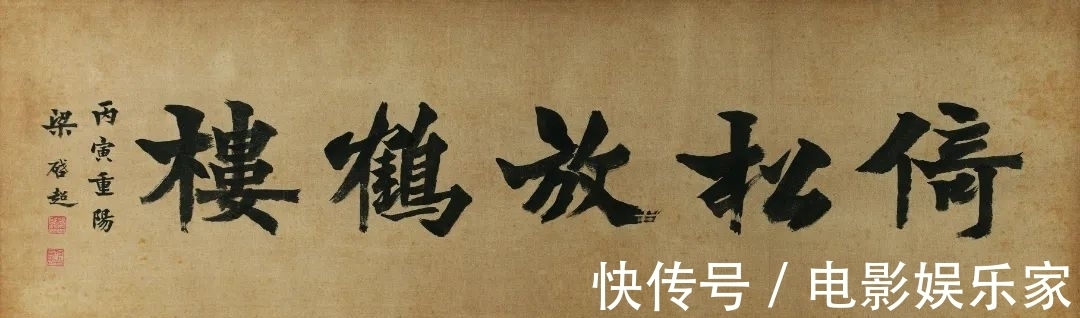 倚松放鶴樓
丙寅重陽
梁啟超
快传号 / 电影娱乐家